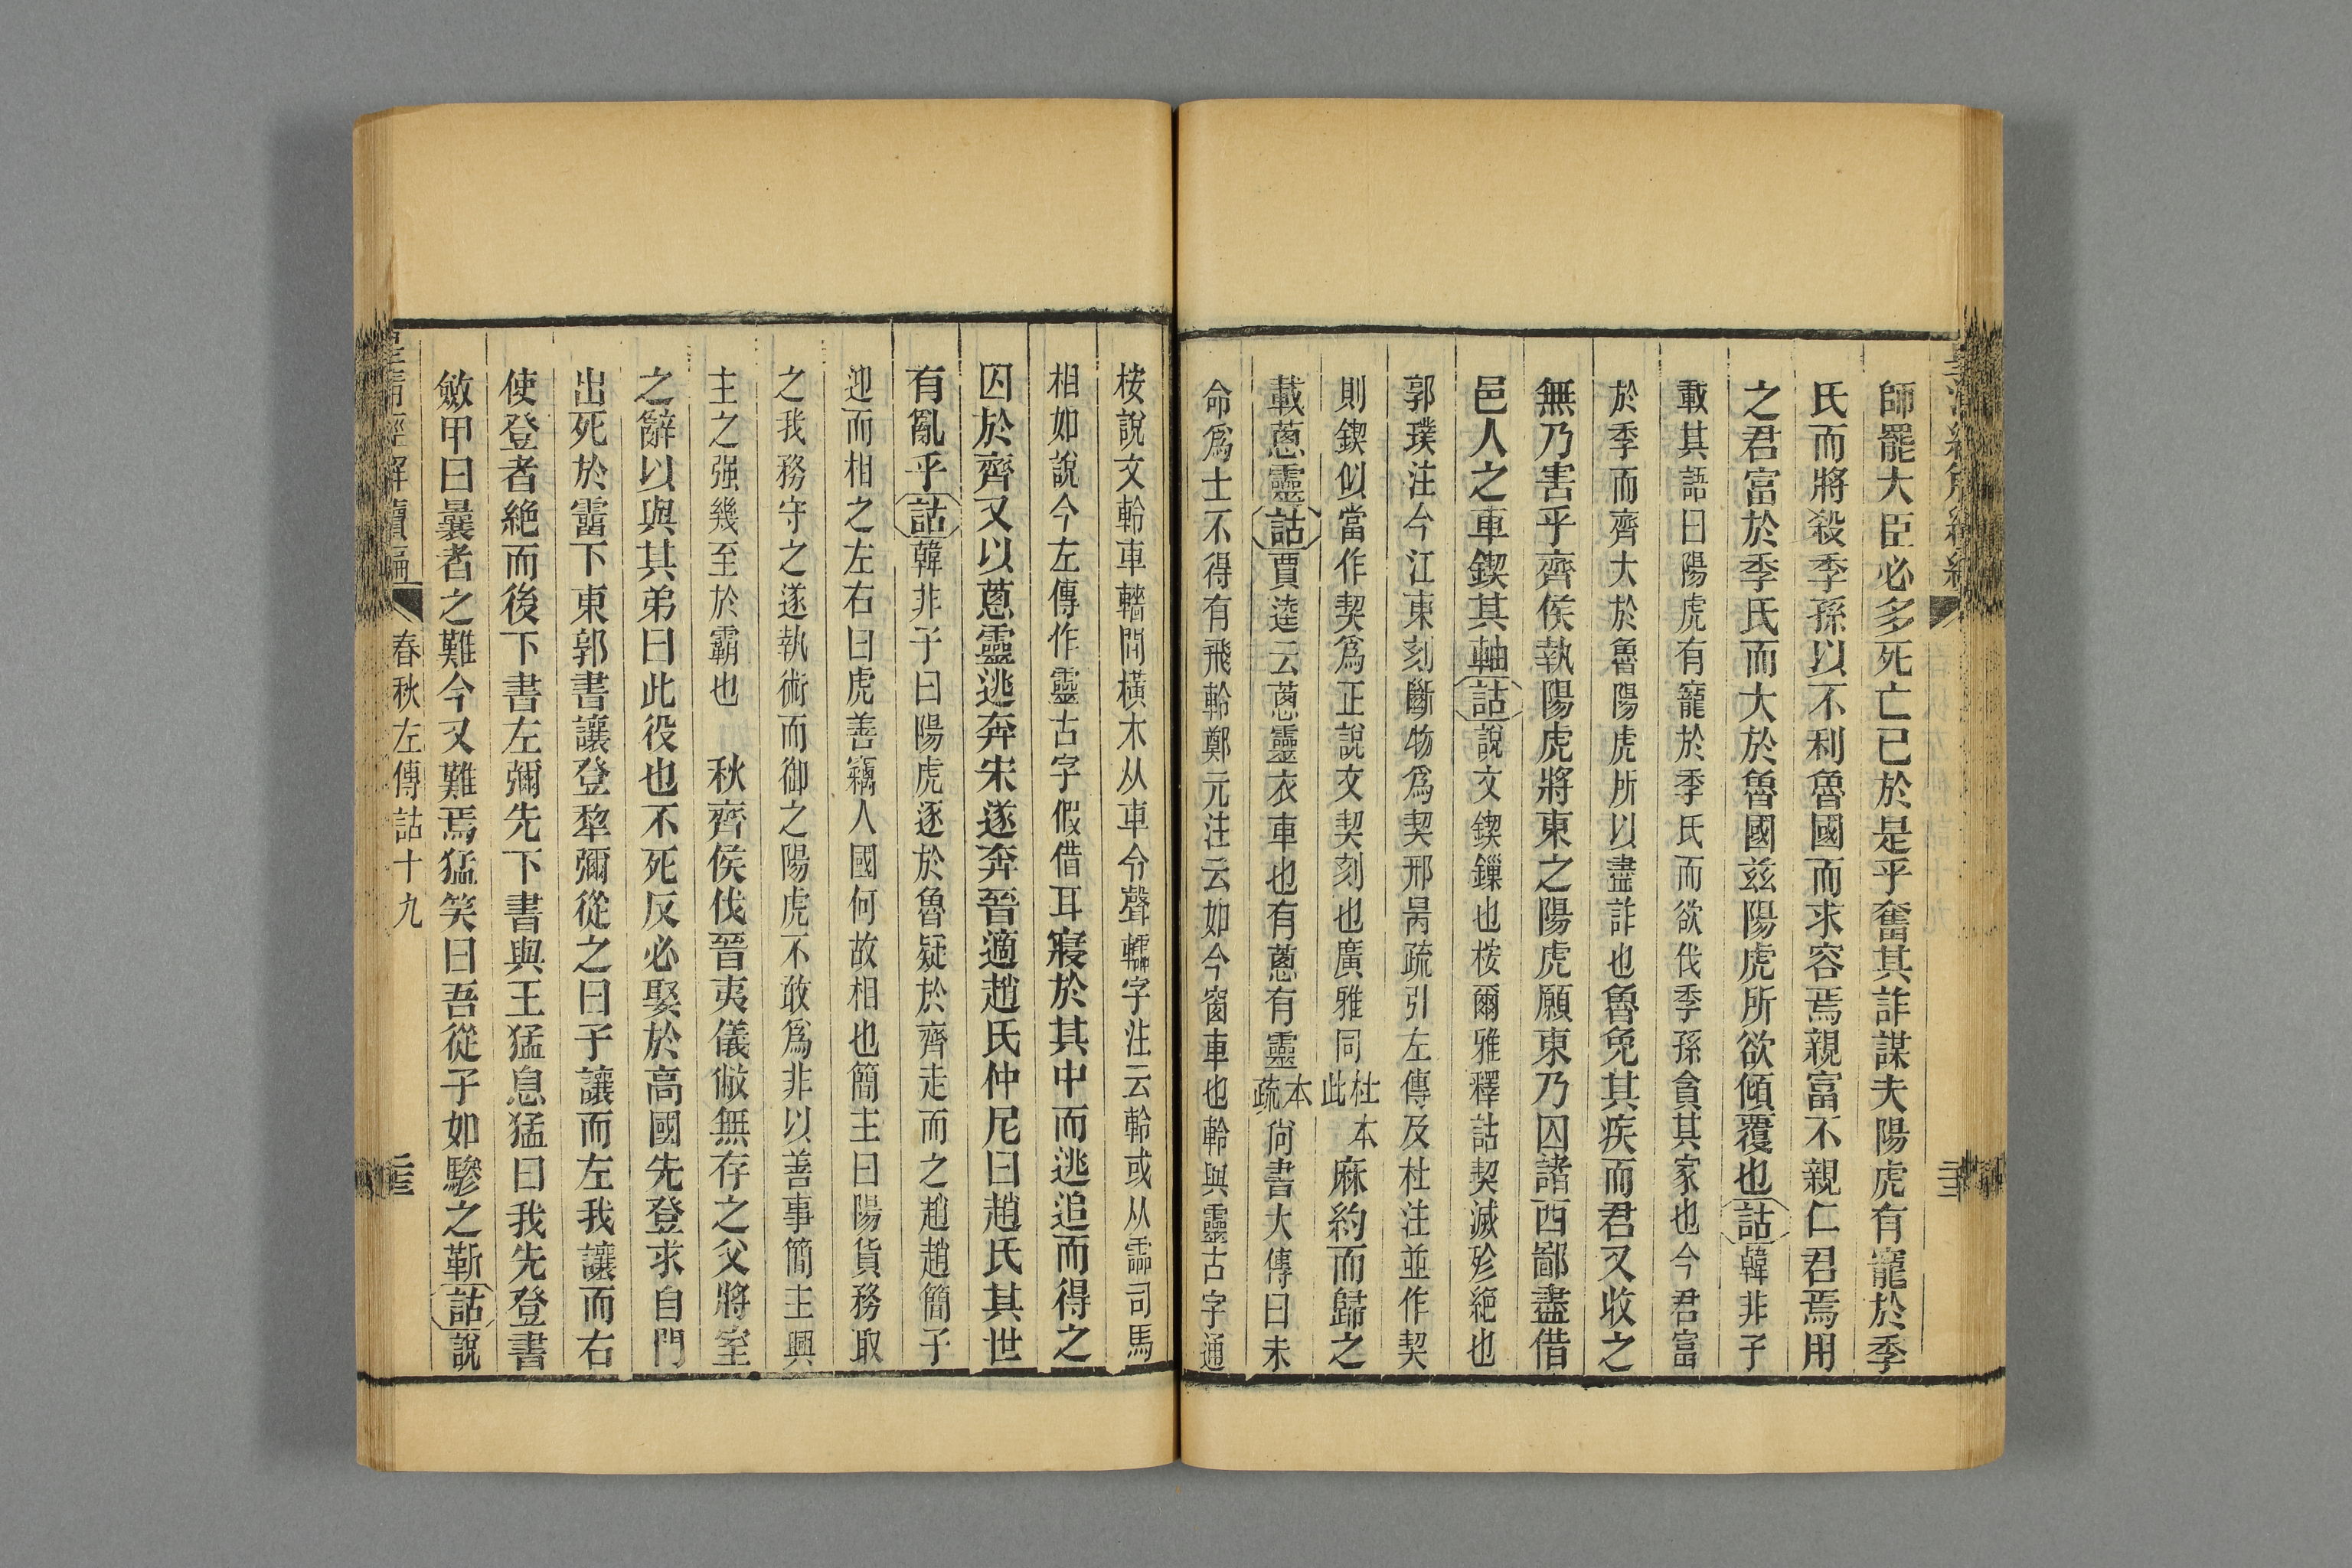 師罷大臣必多死亡已於是乎奮其詐謀夫陽虎有寵於季
氏而將殺季孫以不利魯國而求容焉親富不親仁君焉用
之君富於季氏而大於魯國兹陽虎所欲傾覆也詁韓非子
載其語曰陽虎有寵於季氏而欲伐季孫貪其家也今君富
於季而齊大於魯陽虎所以盡詐也魯免其疾而君又收之
無乃害乎齊侯執陽虎將東之陽虎願東乃囚諸西鄙盡借
邑人之車鍥其軸詁說文鍥鎌也桉爾雅釋詁契滅殄絶也
郭璞注今江東刻斷物爲契邢昺疏引左傳及杜注並作契
則鍥似當作契爲正說文契刻也廣雅同杜本此麻約而歸之
載蔥靈詁賈逵云蔥靈衣車也有蔥有靈本疏尙書大傳曰未
命爲士不得有飛軨鄭元注云如今窗車也軨與靈古字通
桉說文軨車轖間横木从車令聲轜字注云軨或从霝司馬
相如說今左傳作靈古字假借耳寢於其中而逃追而得之
囚於齊又以蔥靈逃奔宋遂奔晉適趙氏仲尼曰趙氏其世
有亂乎詁韓非子曰陽虎逐於魯疑於齊走而之趙趙簡子
迎而相之左右曰虎善竊人國何故相也簡主曰陽貨務取
之我務守之遂執術而御之陽虎不敢爲非以善事簡主興
主之强幾至於霸也　秋齊侯伐晉夷儀敝無存之父將室
之辭以與其弟曰此役也不死反必娶於高國先登求自門
出死於霤下東郭書讓登犂彌從之曰子讓而左我讓而右
使登者絶而後下書左彌先下書與王猛息猛曰我先登書
斂甲曰曩者之難今又難焉猛笑曰吾從子如驂之靳詁說
皇清經解續編
春秋左傳詁十九